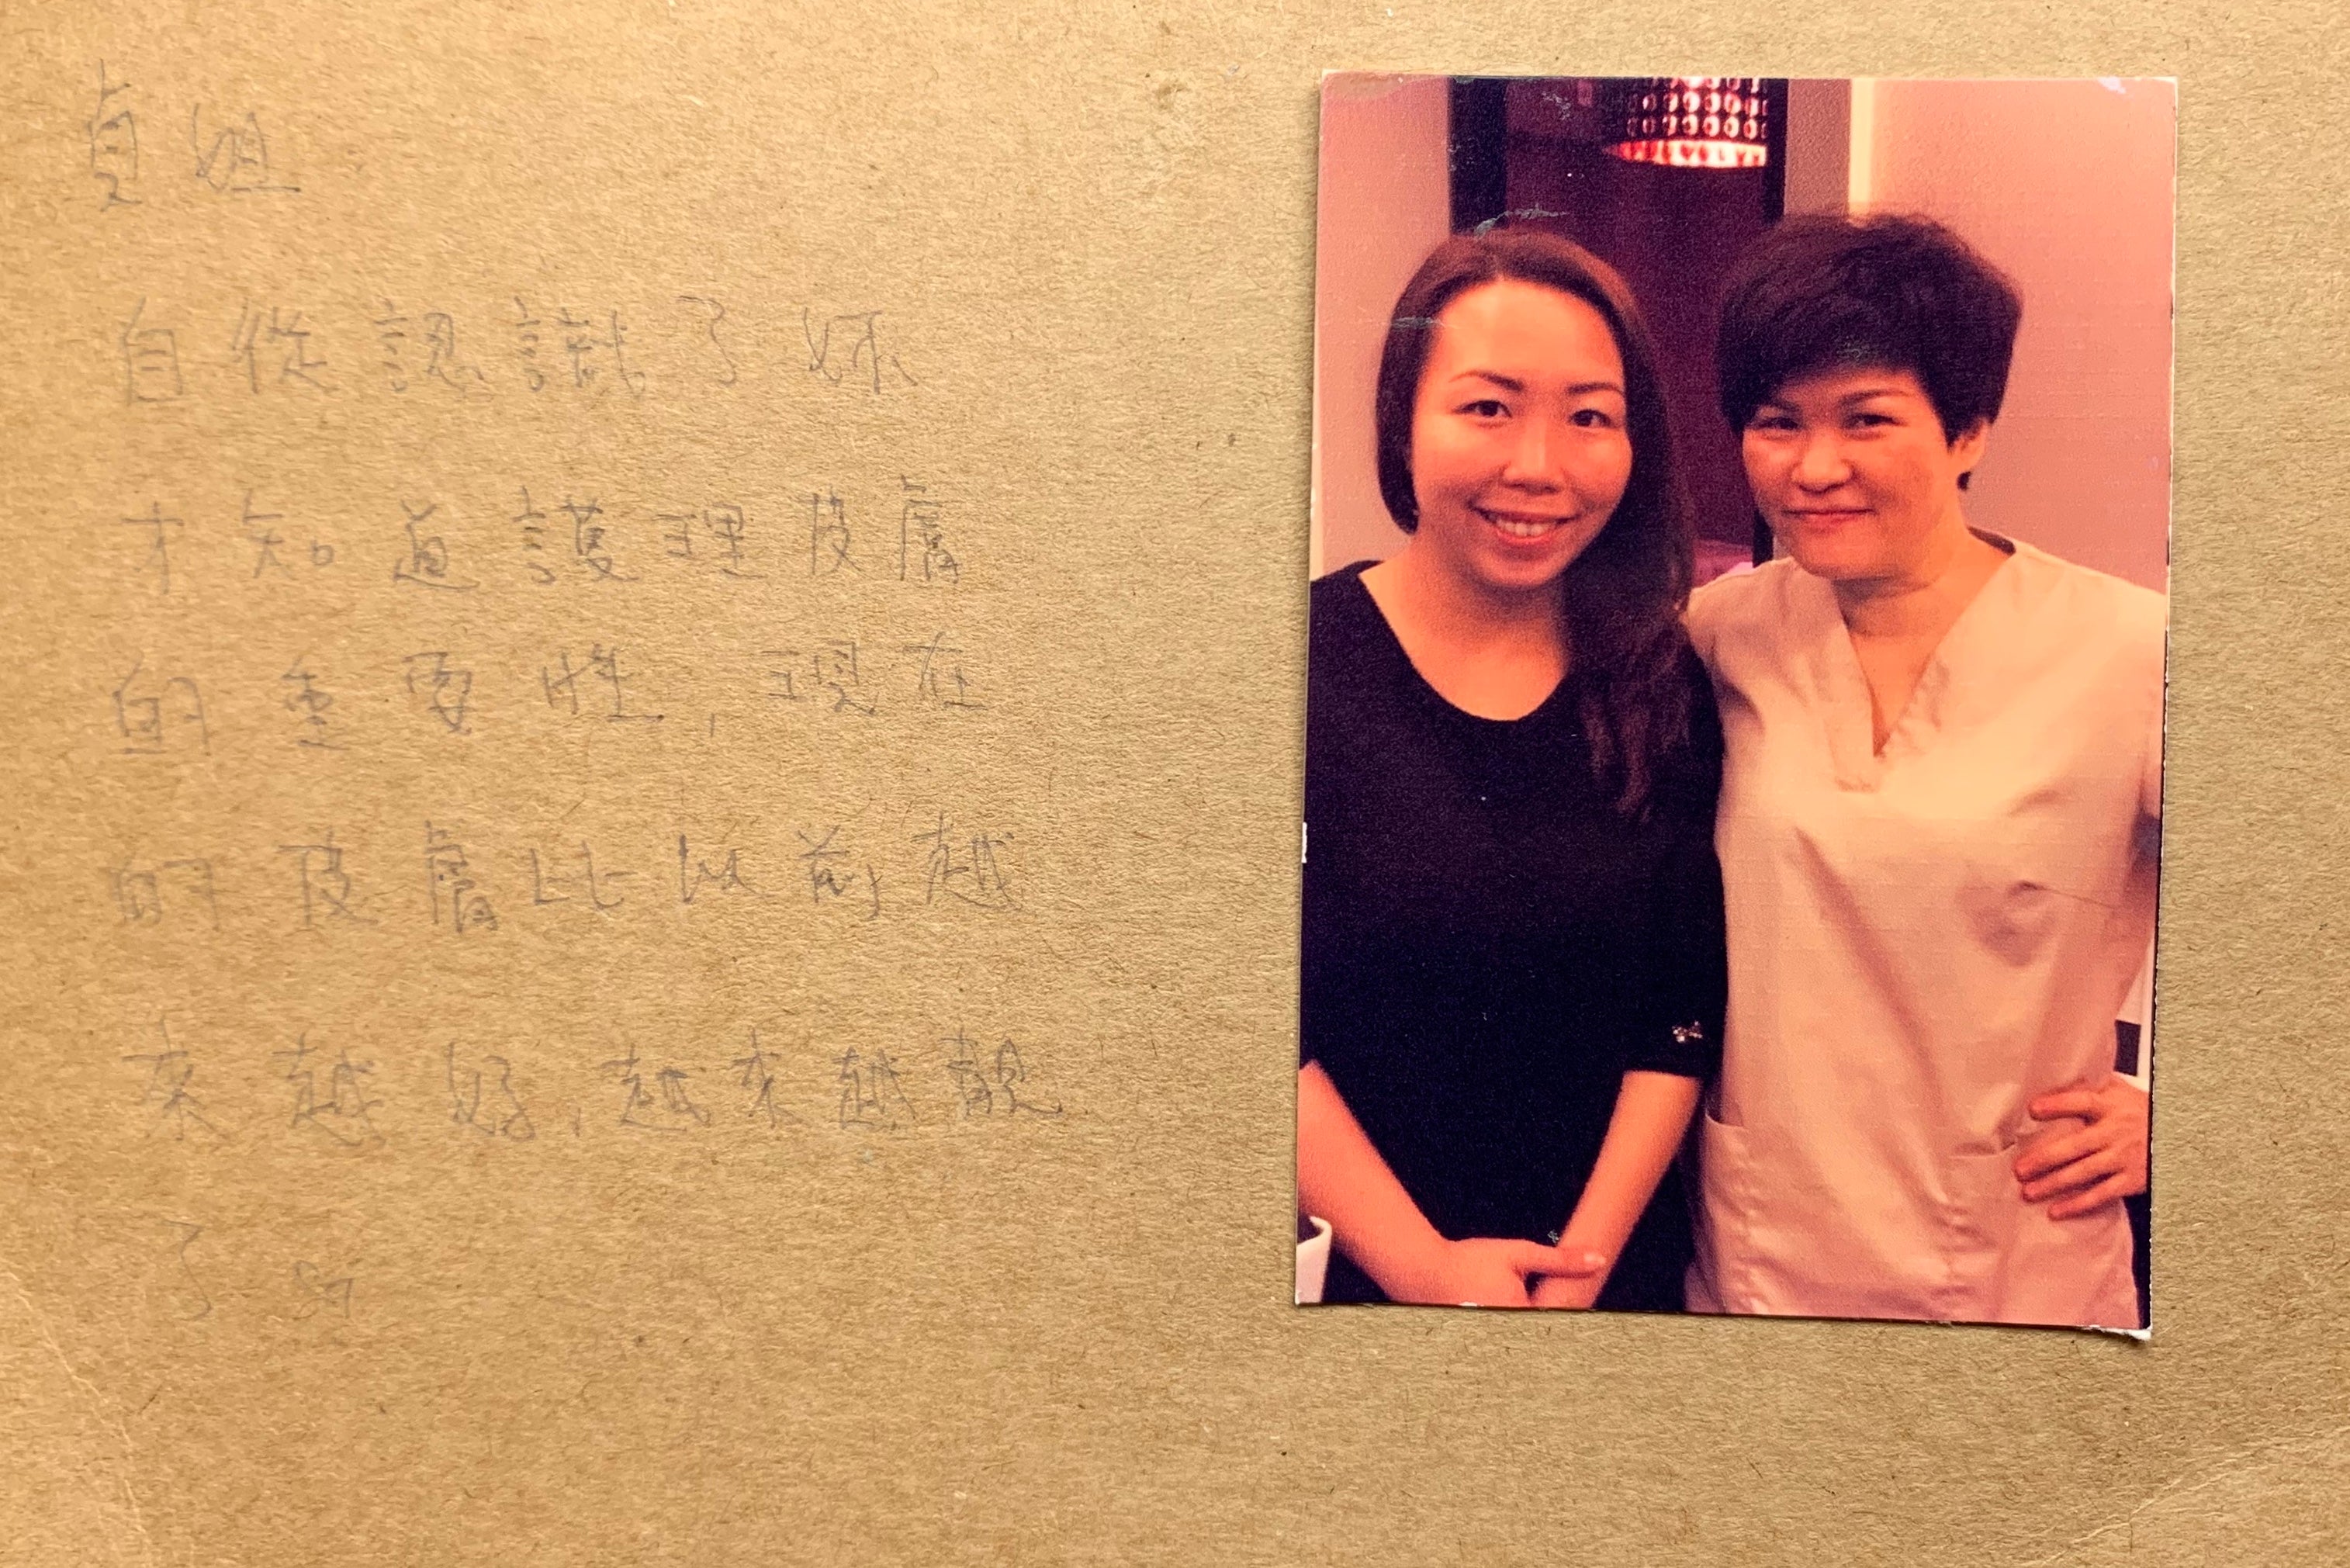 貞姐
自從認識了妳
才知道護理皮膚
的重要性,現在
的皮膚比以前越
來越好,越來越靚
了